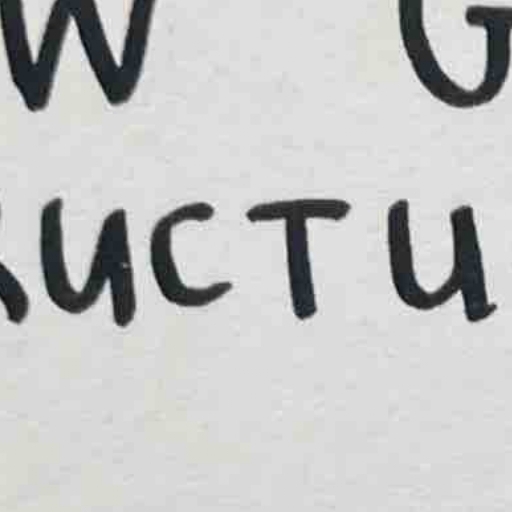 W G
RUCTU